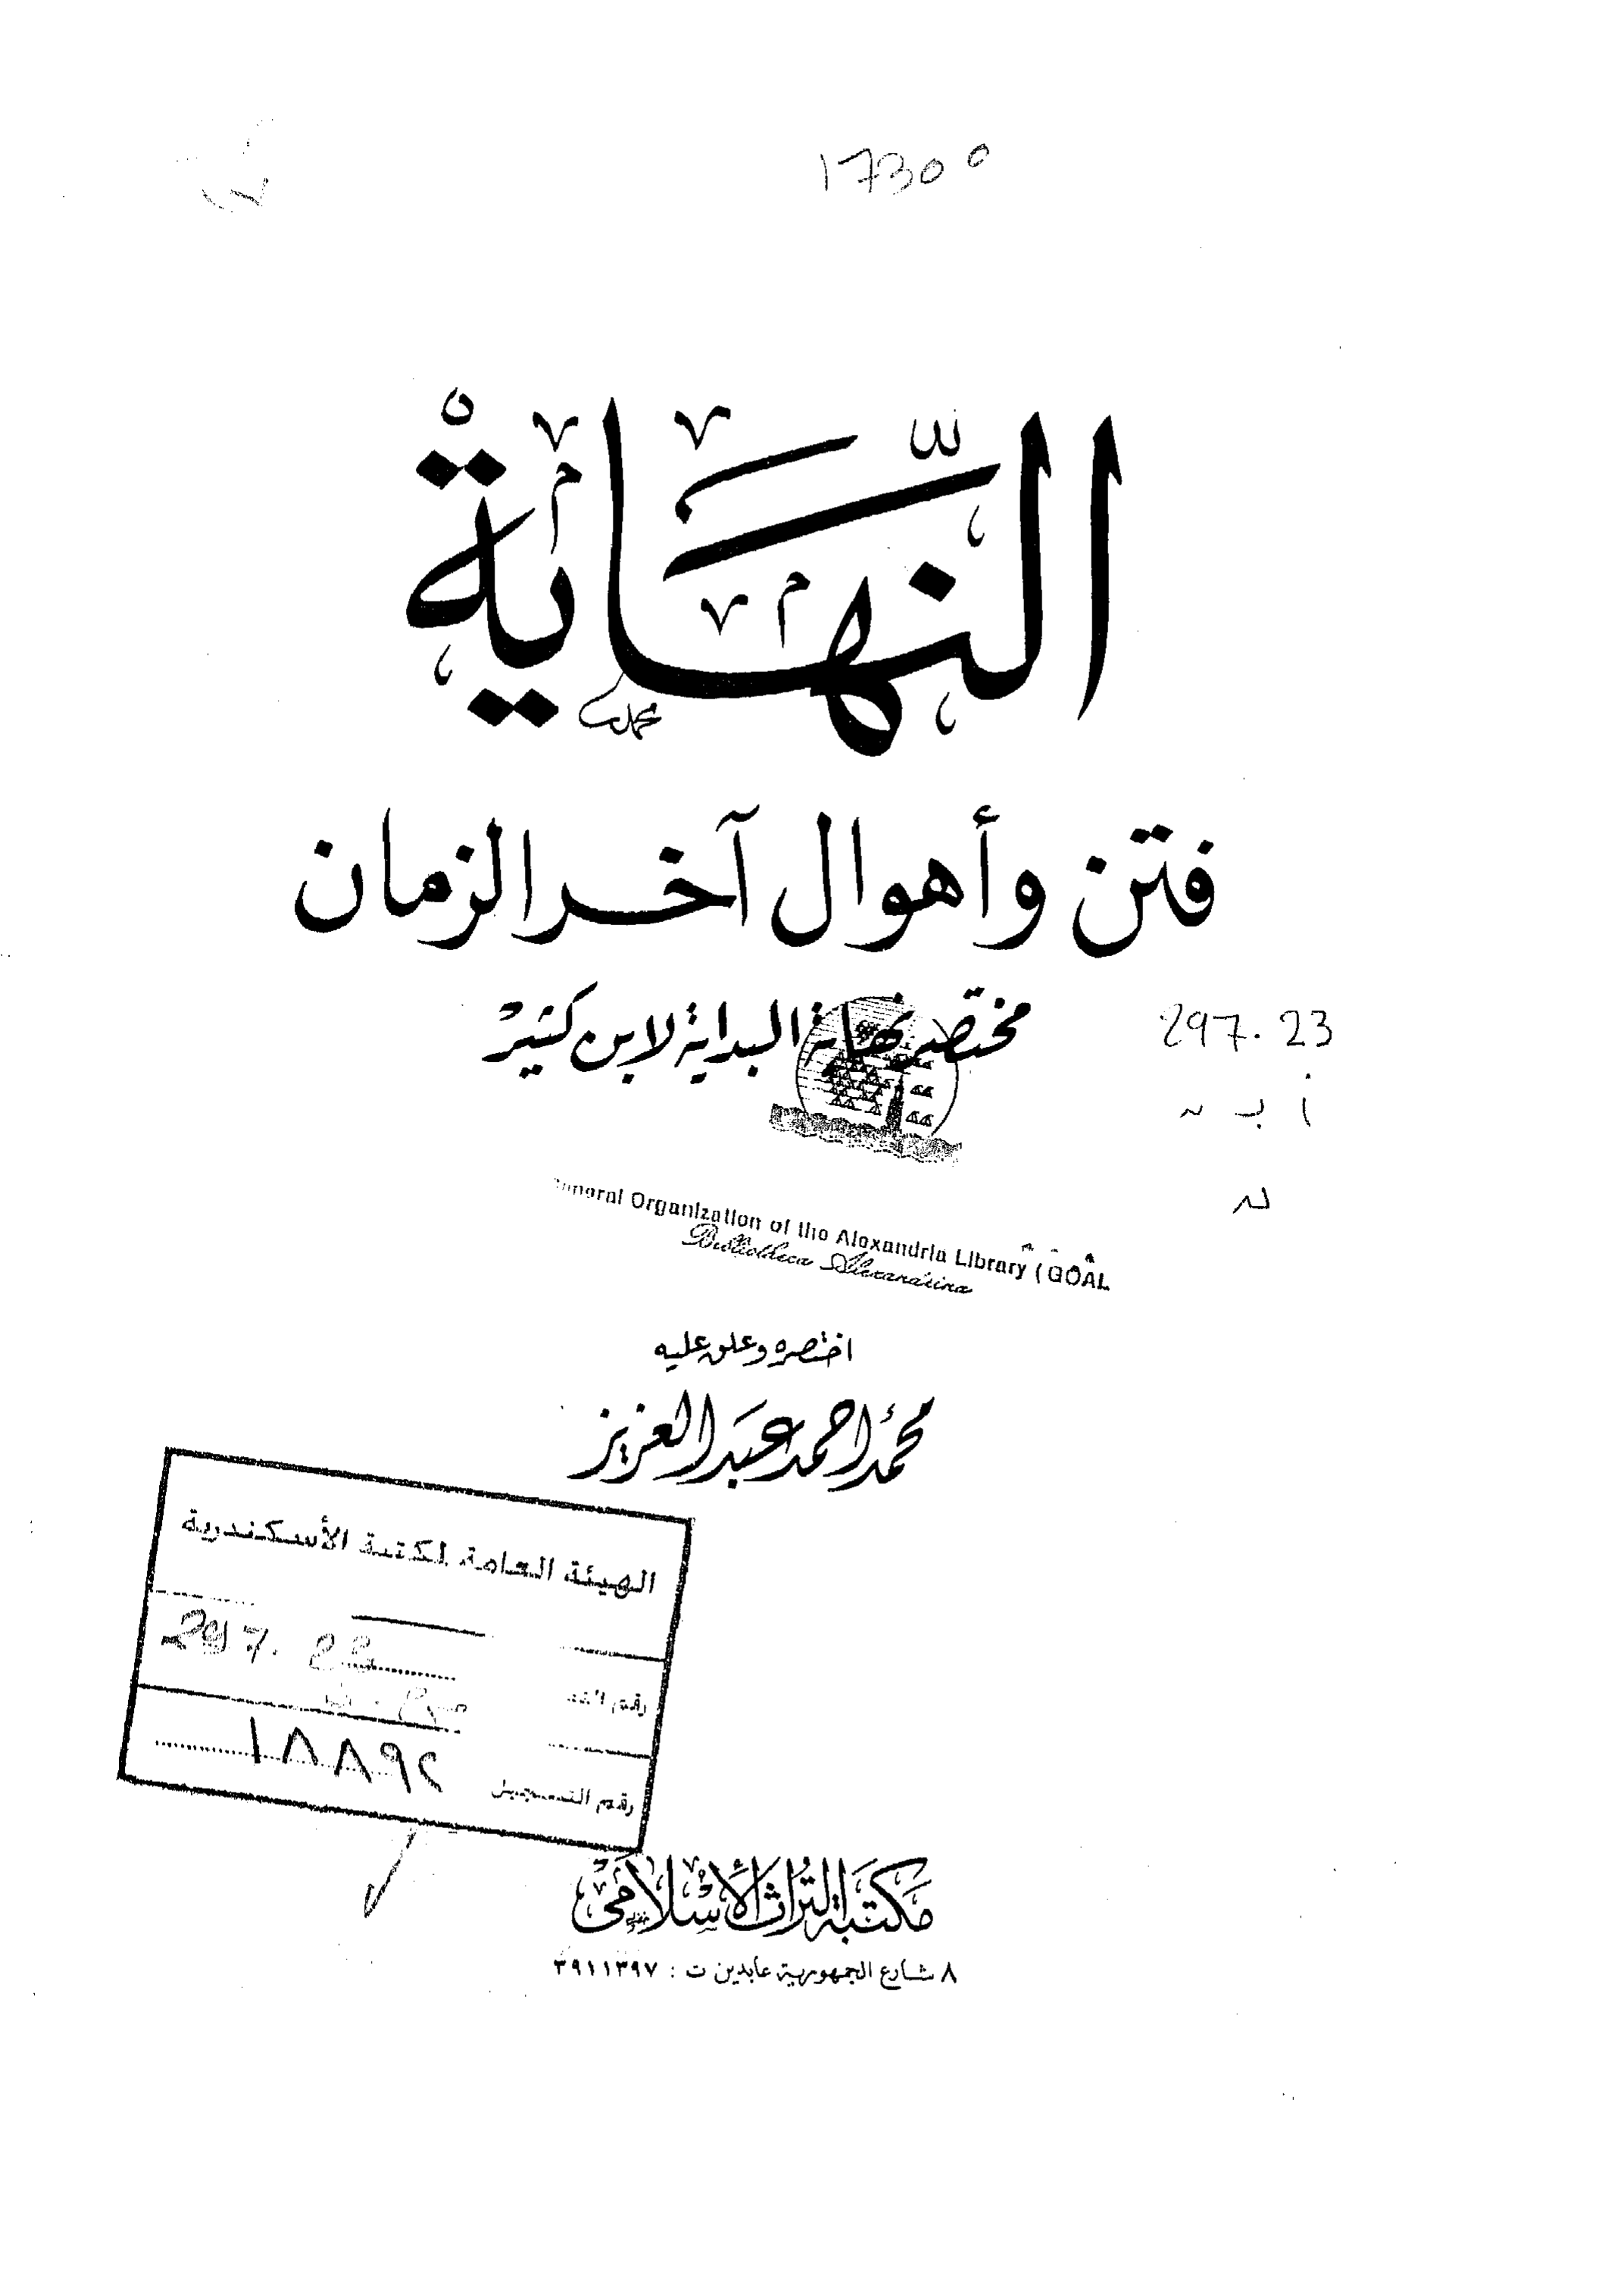 17300
النِّهَايَة
محمد
فتن وأهوال آخر الزمان
مختصر نهاية البداية لابن كثير
297.23
أ ب ن
ن
General Organization of the Alexandria Library (GOAL
Bibliotheca Alexandrina
اختصره وعلق عليه
محمد أحمد عبد العزيز
الهيئة العامة لمكتبة الأسكندرية
297.23
رقم
رقم التسجيل ١٨٨٩٢
مكتبة التراث الإسلامي
٨ شارع الجمهورية عابدين ت : ٣٩١١٣٩٧